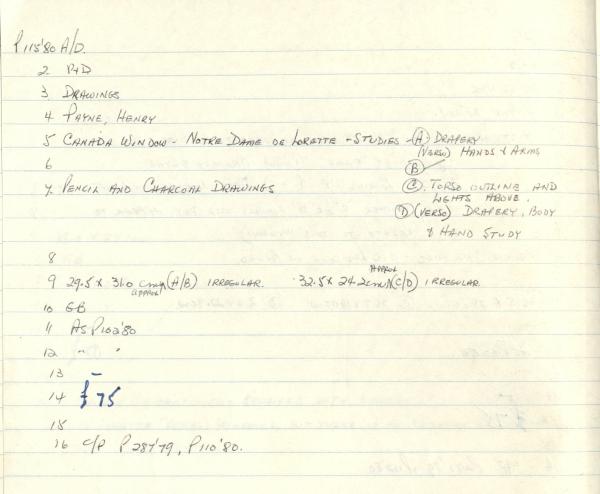 P115'80 A/D.
2 P+D
3 DRAWINGS
4 PAYNE, HENRY
5 CANADA WINDOW - NOTRE DAME DE LORETTE - STUDIES - (A) DRAPERY
(VERSO) HANDS + ARMS
6 (B)
7. PENCIL AND CHARCOAL DRAWINGS (C). TORSO OUTLINE AND
LIGHTS ABOVE.
(D) (VERSO) DRAPERY, BODY
+ HAND STUDY
8
9 29.5 x 31.0 cms (A/B) IRREGULAR. 32.5 x 24.2cms (C/D) IRREGULAR.
APPROX APPROX
10 GB
11 AS P102'80
12 " "
13 –
14 £75
15
16 C/P P287'79, P110'80.